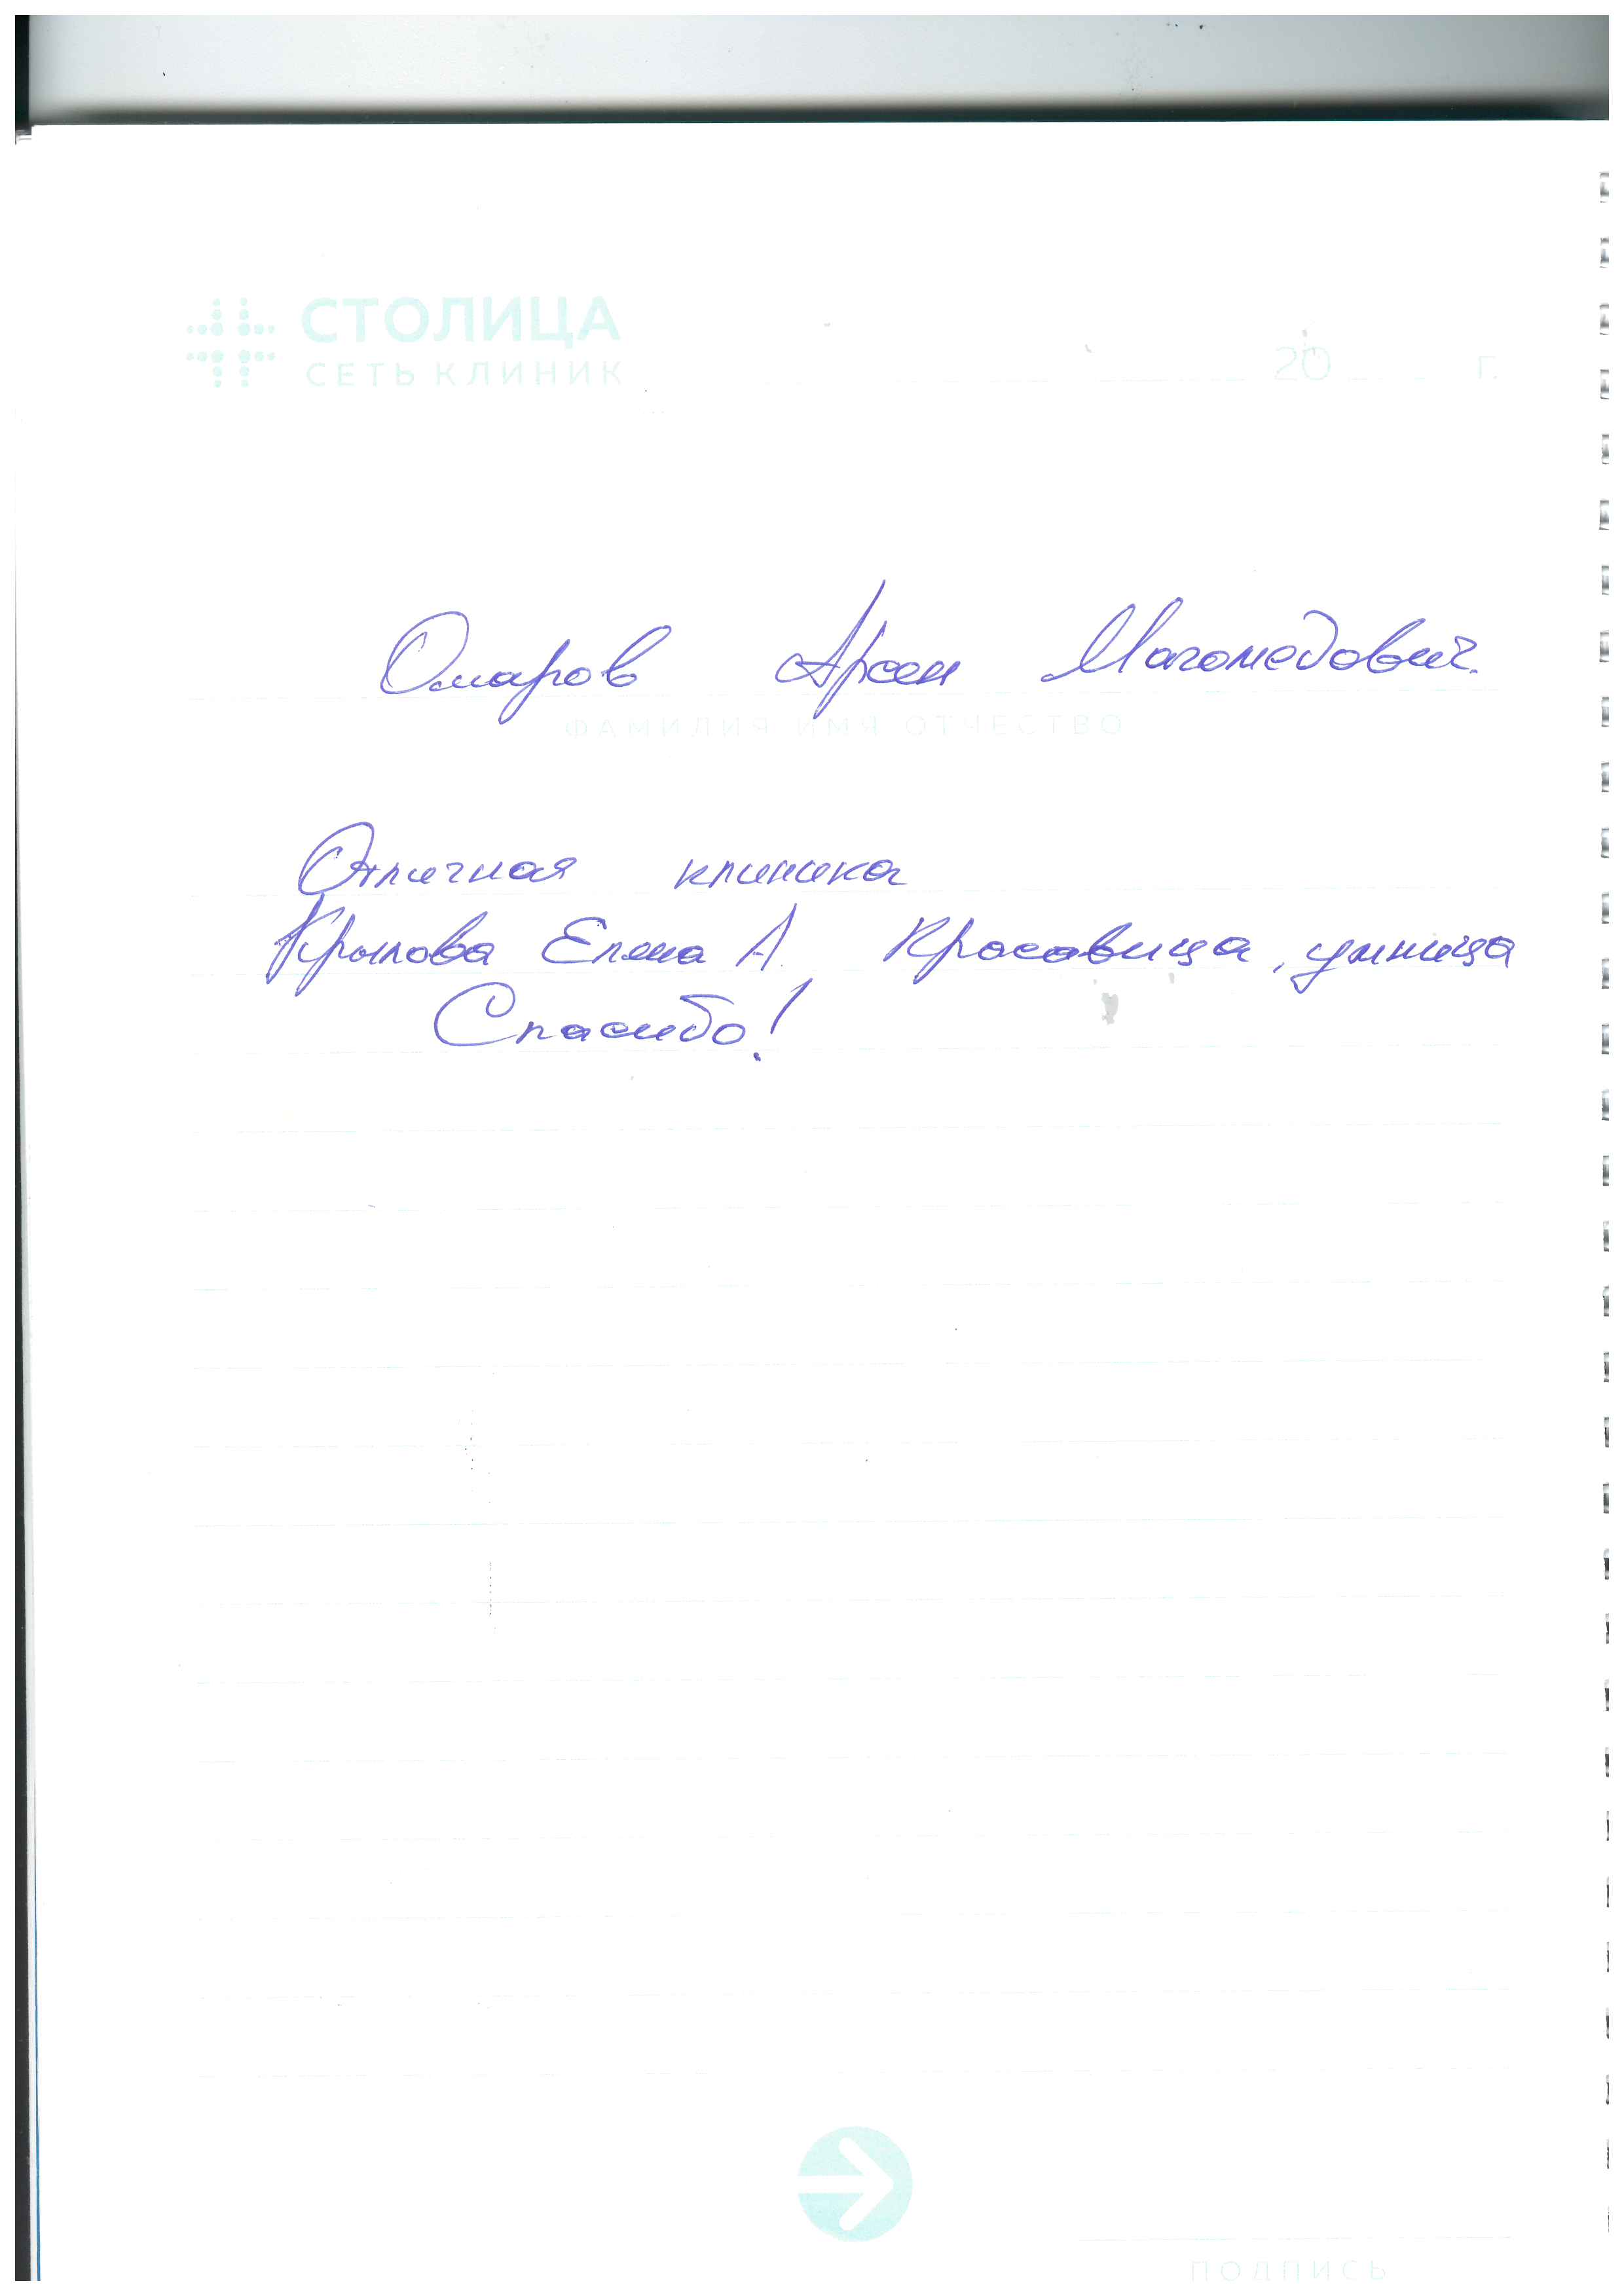 СТОЛИЦА
СЕТЬ КЛИНИК
20 г.
Омаров Арсен Магомедович
ФАМИЛИЯ ИМЯ ОТЧЕСТВО
Отличная клиника
Крылова Елена А. Красавица, умница
Спасибо!
ПОДПИСЬ